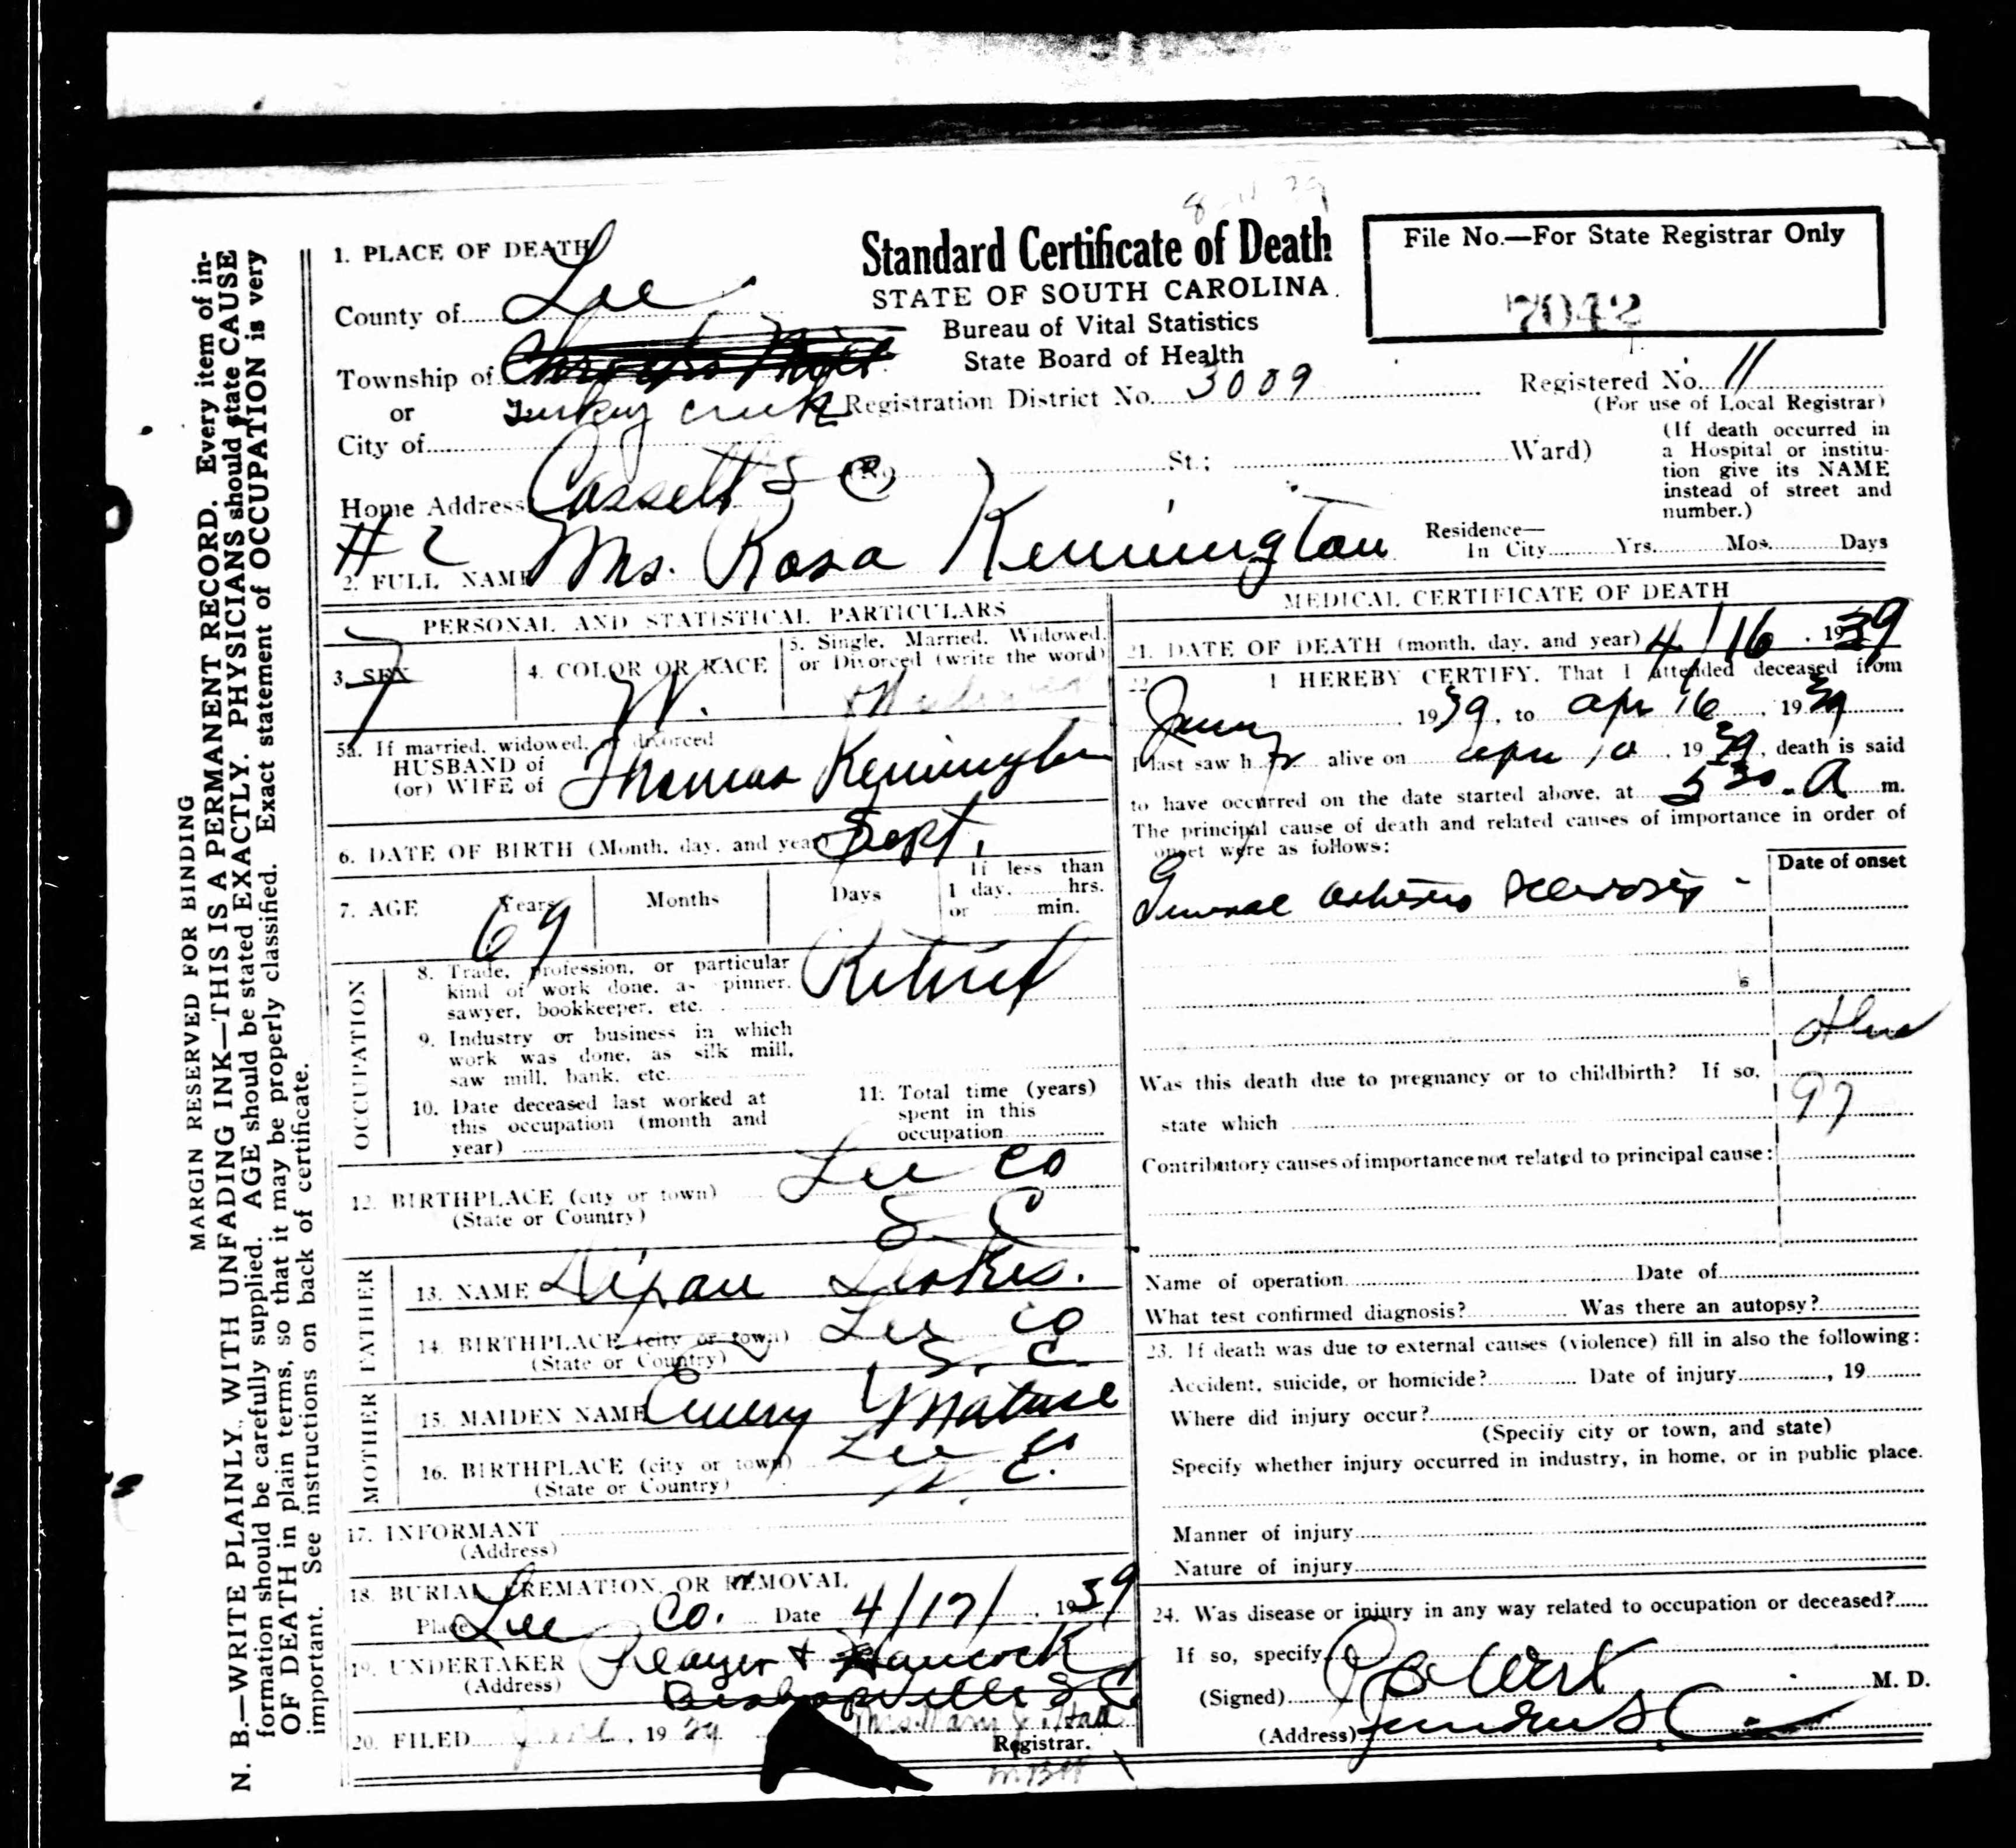 8-11-39
1. PLACE OF DEATH
County of Lee
Township of
or Turkey Creek
City of
Home Address Cassett S C (R.) St.; Ward)
# 2
2. FULL NAME Mrs. Rosa Kennington
Residence—
In City Yrs. Mos. Days
Standard Certificate of Death
STATE OF SOUTH CAROLINA.
Bureau of Vital Statistics
State Board of Health
Registration District No. 3009
File No.—For State Registrar Only
7042
Registered No. 11
(For use of Local Registrar)
(If death occurred in
a Hospital or institu-
tion give its NAME
instead of street and
number.)
PERSONAL AND STATISTICAL PARTICULARS
3. SEX F
4. COLOR OR RACE W.
5. Single, Married, Widowed,
or Divorced (write the word)
5a. If married, widowed, or divorced
HUSBAND of
(or) WIFE of Thomas Kennington
6. DATE OF BIRTH (Month, day, and year) Sept.
7. AGE Years 69 Months Days
If less than
1 day, hrs.
or min.
OCCUPATION
8. Trade, profession, or particular
kind of work done, as spinner,
sawyer, bookkeeper, etc. Retired
9. Industry or business in which
work was done, as silk mill,
saw mill, bank, etc.
10. Date deceased last worked at
this occupation (month and
year)
11. Total time (years)
spent in this
occupation
12. BIRTHPLACE (city or town) Lee Co
(State or Country) S C
FATHER
13. NAME
14. BIRTHPLACE (city or town) Lee Co
(State or Country) S. C.
MOTHER
15. MAIDEN NAME
16. BIRTHPLACE (city or town) Lee Co
(State or Country) S. C.
17. INFORMANT
(Address)
18. BURIAL, CREMATION, OR REMOVAL
Place Lee Co. Date 4/17/, 1939
19. UNDERTAKER & Hancock
(Address) Bishopville S C
20. FILED, 1939 Mrs. Mary Hall
Registrar.
MEDICAL CERTIFICATE OF DEATH
21. DATE OF DEATH (month, day, and year) 4/16, 1939
22. I HEREBY CERTIFY, That I attended deceased from
1939, to apr 16, 1939
I last saw her alive on apr 10, 1939, death is said
to have occurred on the date started above, at 5 30 A m.
The principal cause of death and related causes of importance in order of
onset were as follows:
Date of onset
General arterio sclerosis -
97
Was this death due to pregnancy or to childbirth? If so,
state which
Contributory causes of importance not related to principal cause:
Name of operation Date of
What test confirmed diagnosis? Was there an autopsy?
23. If death was due to external causes (violence) fill in also the following:
Accident, suicide, or homicide? Date of injury, 19
Where did injury occur?
(Specify city or town, and state)
Specify whether injury occurred in industry, in home, or in public place.
Manner of injury
Nature of injury
24. Was disease or injury in any way related to occupation or deceased?
If so, specify
(Signed) M. D.
(Address) S C
MARGIN RESERVED FOR BINDING
N. B.—WRITE PLAINLY, WITH UNFADING INK—THIS IS A PERMANENT RECORD. Every item of in-
formation should be carefully supplied. AGE should be stated EXACTLY. PHYSICIANS should state CAUSE
OF DEATH in plain terms, so that it may be properly classified. Exact statement of OCCUPATION is very
important. See instructions on back of certificate.